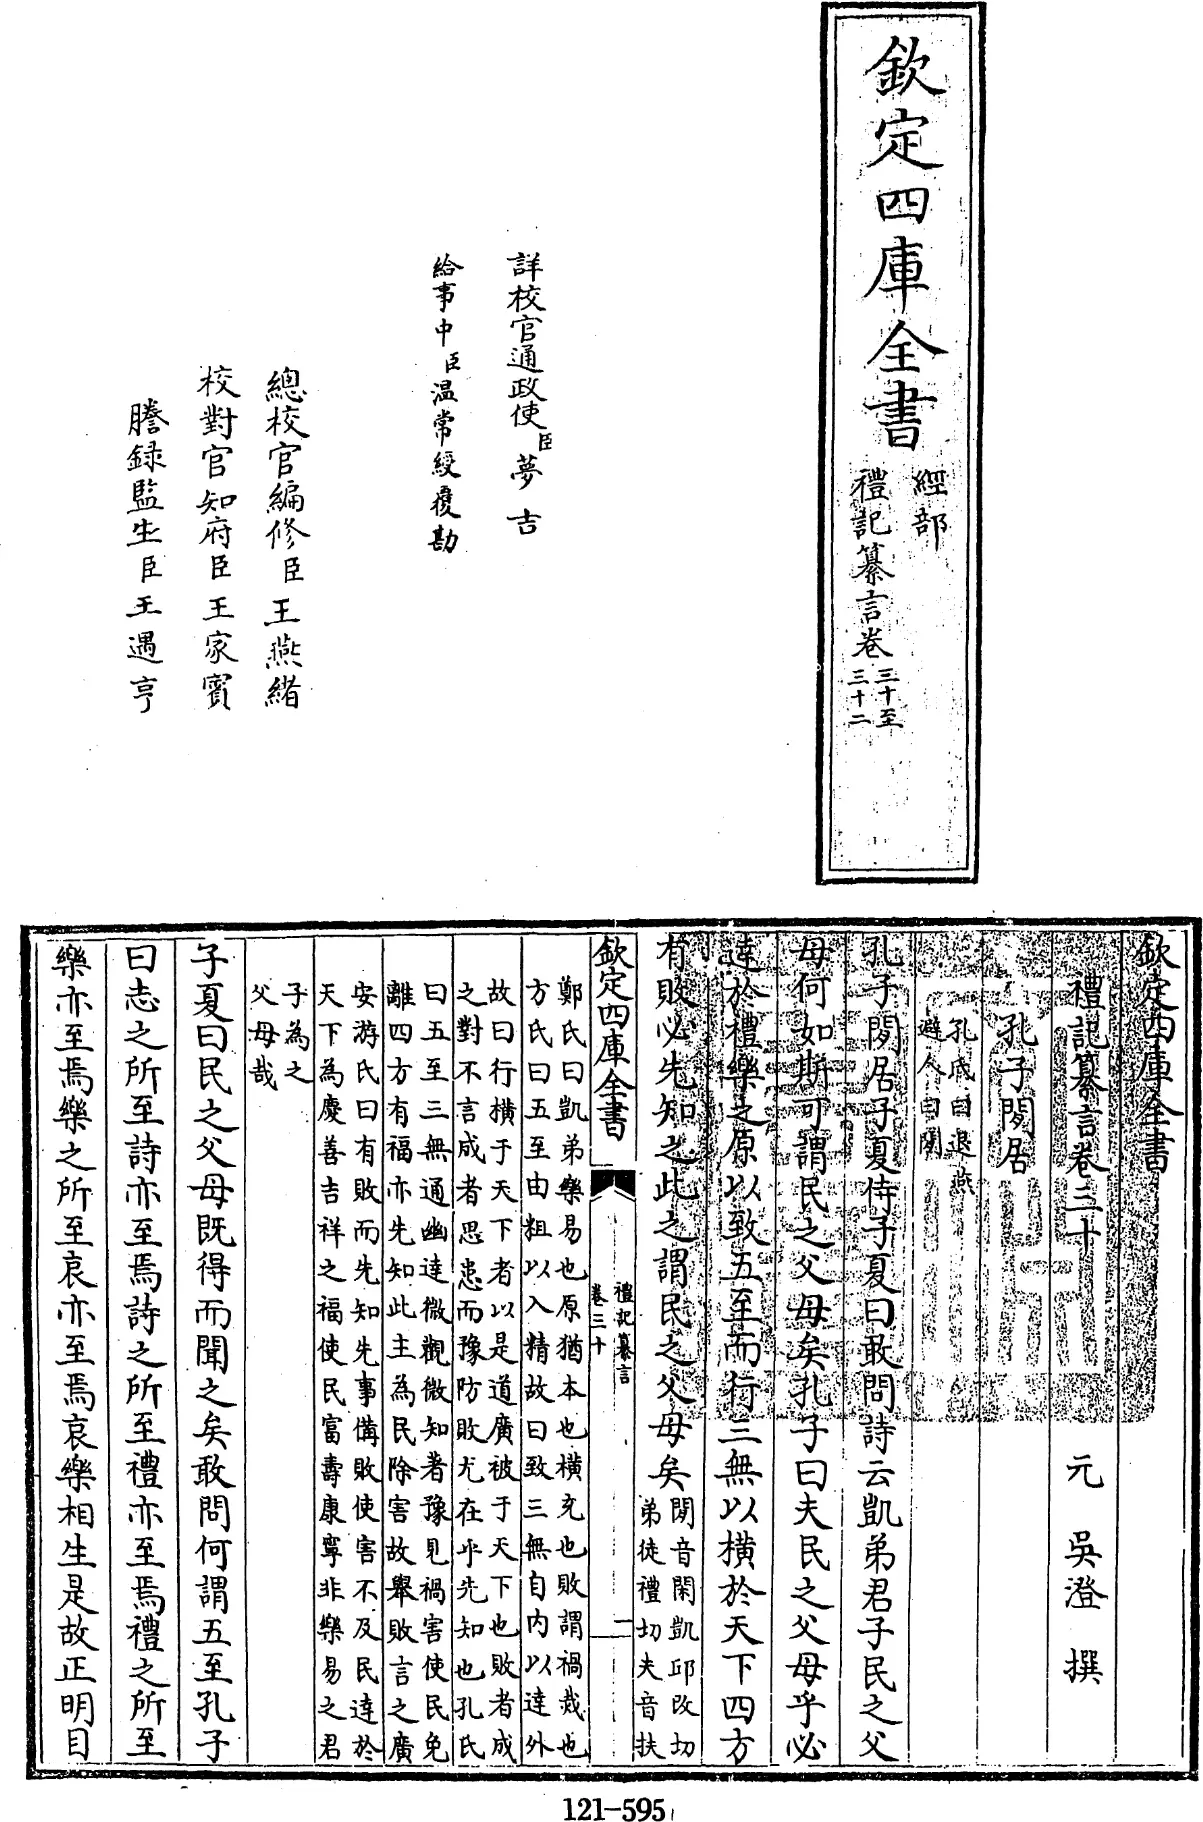 欽定四庫全書
經部
禮記纂言卷
三十至
三十二
詳校官通政使臣夢吉
給事中臣温常綬覆勘
總校官編修臣王燕緒
校對官知府臣王家賓
謄録監生臣王遇亨
欽定四庫全書
禮記纂言卷三十
元 吳澄 撰
孔子閒居
孔氏曰退燕
避人曰閒
孔子閒居子夏侍子夏曰敢問詩云凱弟君子民之父
母何如斯可謂民之父母矣孔子曰夫民之父母乎必
達於禮樂之原以致五至而行三無以橫於天下四方
有敗必先知之此之謂民之父母矣
閒音閑凱邱改切
弟徒禮切夫音扶
欽定四庫全書
禮記纂言
卷三十
一
鄭氏曰凱弟樂易也原猶本也橫充也敗謂禍烖也
方氏曰五至由粗以入精故曰致三無自内以達外
故曰行橫于天下者以是道廣被于天下也敗者成
之對不言成者思患而豫防敗尤在乎先知也孔氏
曰五至三無通幽達微觀微知著豫見禍害使民免
離四方有福亦先知此主為民除害故舉敗言之廣
安游氏曰有敗而先知先事備敗使害不及民達於
天下為慶善吉祥之福使民富壽康寧非樂易之君
子為之
父母哉
子夏曰民之父母既得而聞之矣敢問何謂五至孔子
曰志之所至詩亦至焉詩之所至禮亦至焉禮之所至
樂亦至焉樂之所至哀亦至焉哀樂相生是故正明目
121-595